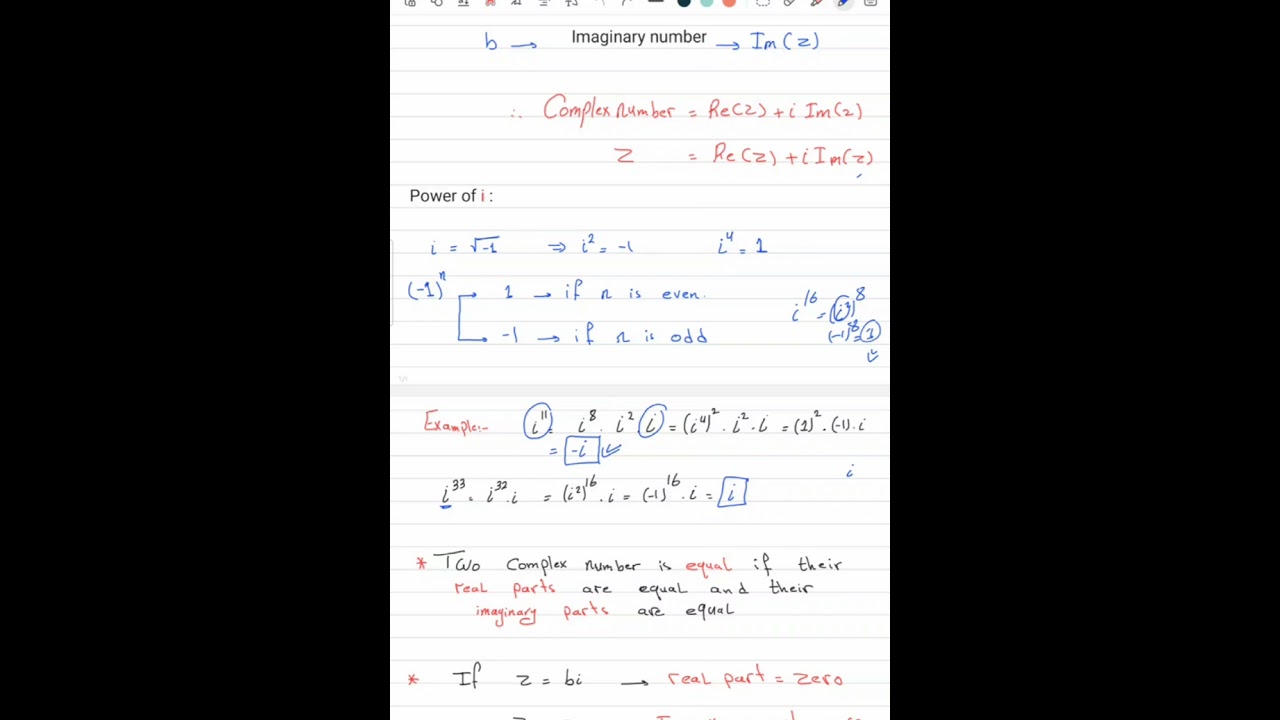 b → Imaginary number → Im(z)
∴ Complex number = Re(z) + i Im(z)
z = Re(z) + i Im(z)
Power of i :
i = √-1 ⇒ i² = -1 i⁴ = 1
(-1)ⁿ → 1 → if n is even.
→ -1 → if n is odd
i¹⁶ = (i²)⁸
(-1)⁸ = 1
Example:- i¹¹ = i⁸ . i² . i = (i⁴)² . i² . i = (1)² . (-1) . i
= -i
i
i³³ = i³² . i = (i²)¹⁶ . i = (-1)¹⁶ . i = i
* Two Complex number is equal if their
real parts are equal and their
imaginary parts are equal
* If z = bi → real part = zero